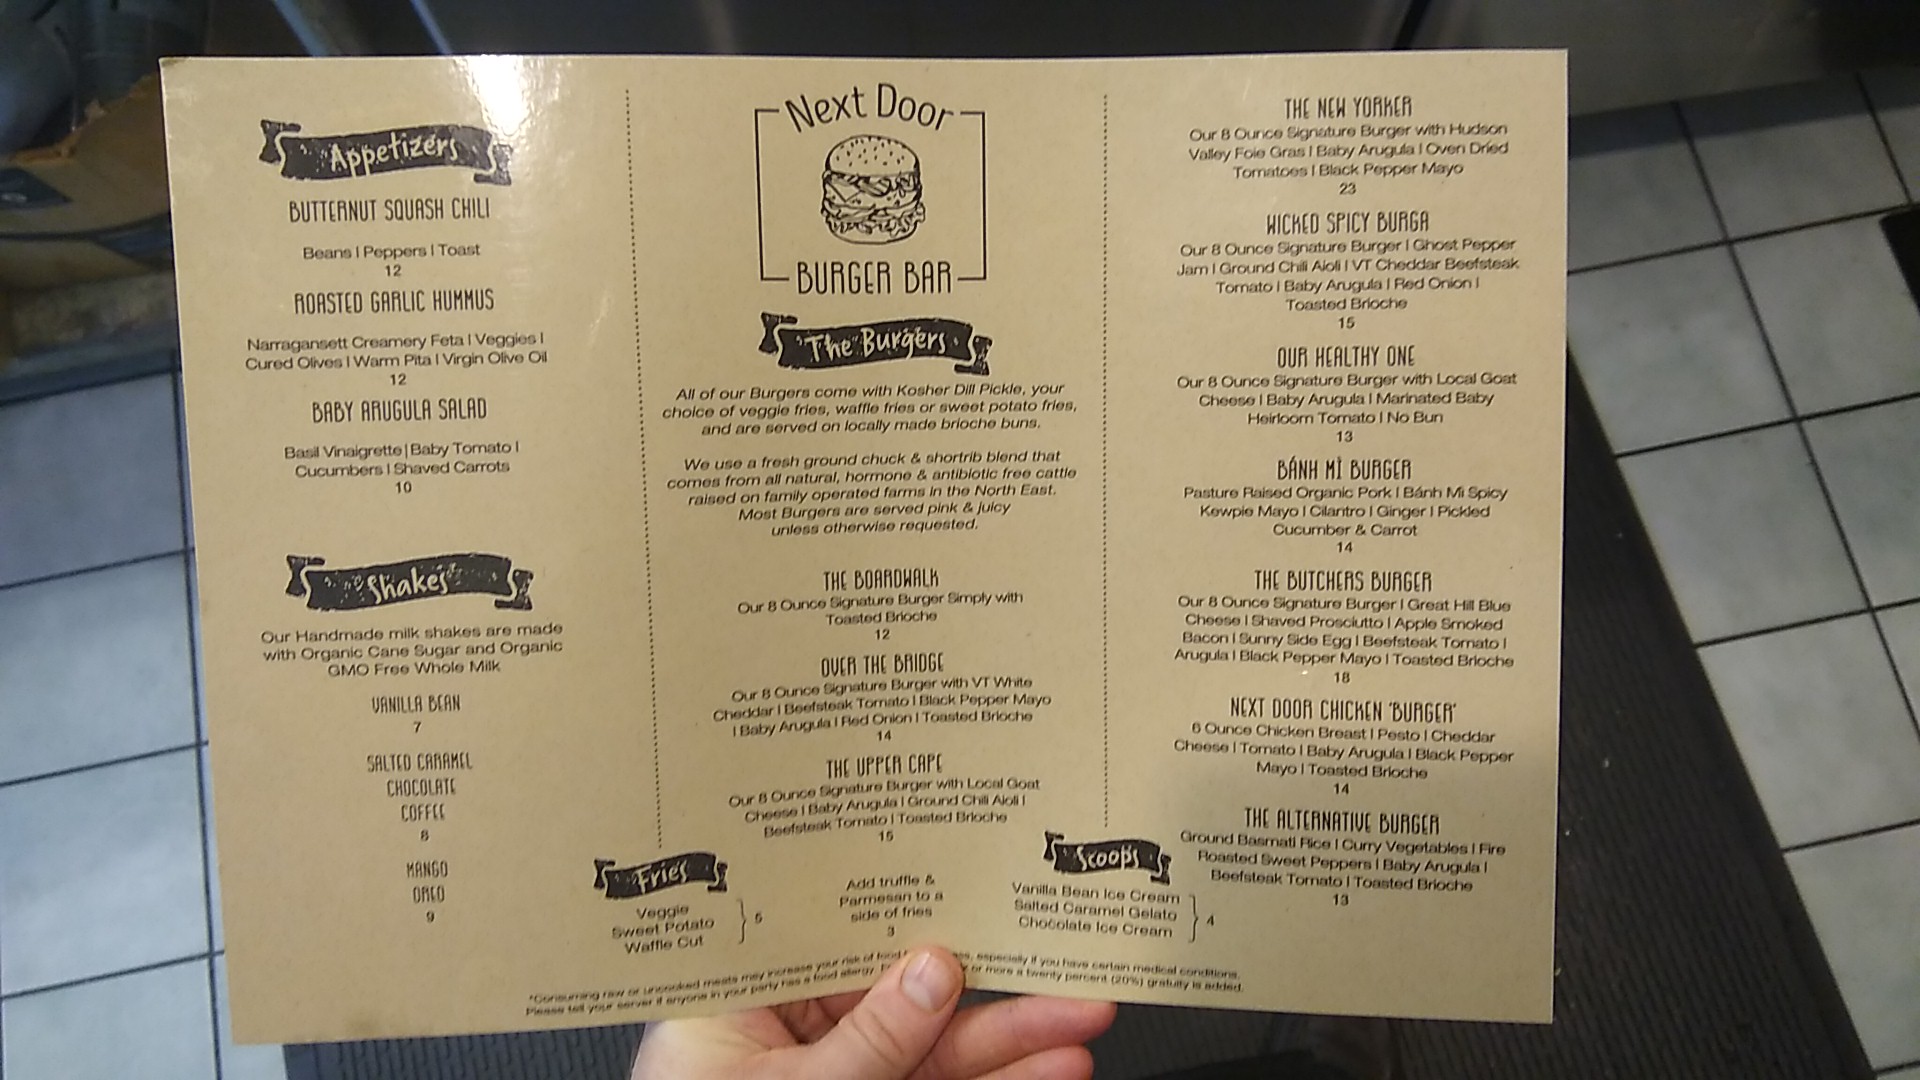 Appetizers
BUTTERNUT SQUASH CHILI
Beans | Peppers | Toast
12
ROASTED GARLIC HUMMUS
Narragansett Creamery Feta | Veggies |
Cured Olives | Warm Pita | Virgin Olive Oil
12
BABY ARUGULA SALAD
Basil Vinaigrette | Baby Tomato |
Cucumbers | Shaved Carrots
10
Shakes
Our Handmade milk shakes are made
with Organic Cane Sugar and Organic
GMO Free Whole Milk
VANILLA BEAN
7
SALTED CARAMEL
CHOCOLATE
COFFEE
8
MANGO
OREO
9
Next Door
BURGER BAR
The Burgers
All of our Burgers come with Kosher Dill Pickle, your
choice of veggie fries, waffle fries or sweet potato fries,
and are served on locally made brioche buns.
We use a fresh ground chuck & shortrib blend that
comes from all natural, hormone & antibiotic free cattle
raised on family operated farms in the North East.
Most Burgers are served pink & juicy
unless otherwise requested.
THE BOARDWALK
Our 8 Ounce Signature Burger Simply with
Toasted Brioche
12
OVER THE BRIDGE
Our 8 Ounce Signature Burger with VT White
Cheddar | Beefsteak Tomato | Black Pepper Mayo
| Baby Arugula | Red Onion | Toasted Brioche
14
THE UPPER CAPE
Our 8 Ounce Signature Burger with Local Goat
Cheese | Baby Arugula | Ground Chili Aioli |
Beefsteak Tomato | Toasted Brioche
15
Fries
Veggie
Sweet Potato
Waffle Cut
5
Add truffle &
Parmesan to a
side of fries
3
THE NEW YORKER
Our 8 Ounce Signature Burger with Hudson
Valley Foie Gras | Baby Arugula | Oven Dried
Tomatoes | Black Pepper Mayo
23
WICKED SPICY BURGA
Our 8 Ounce Signature Burger | Ghost Pepper
Jam | Ground Chili Aioli | VT Cheddar Beefsteak
Tomato | Baby Arugula | Red Onion |
Toasted Brioche
15
OUR HEALTHY ONE
Our 8 Ounce Signature Burger with Local Goat
Cheese | Baby Arugula | Marinated Baby
Heirloom Tomato | No Bun
13
BÁNH MÌ BURGER
Pasture Raised Organic Pork | Bánh Mi Spicy
Kewpie Mayo | Cilantro | Ginger | Pickled
Cucumber & Carrot
14
THE BUTCHERS BURGER
Our 8 Ounce Signature Burger | Great Hill Blue
Cheese | Shaved Prosciutto | Apple Smoked
Bacon | Sunny Side Egg | Beefsteak Tomato |
Arugula | Black Pepper Mayo | Toasted Brioche
18
NEXT DOOR CHICKEN 'BURGER'
6 Ounce Chicken Breast | Pesto | Cheddar
Cheese | Tomato | Baby Arugula | Black Pepper
Mayo | Toasted Brioche
14
THE ALTERNATIVE BURGER
Ground Basmati Rice | Curry Vegetables | Fire
Roasted Sweet Peppers | Baby Arugula |
Beefsteak Tomato | Toasted Brioche
13
Scoops
Vanilla Bean Ice Cream
Salted Caramel Gelato
Chocolate Ice Cream
4
*Consuming raw or uncooked meats may increase your risk of food especially if you have certain medical conditions.
Please tell your server if anyone in your party has a food allergy. or more a twenty percent (20%) gratuity is added.